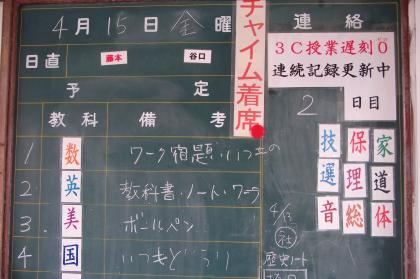 4月15日金曜
日直 藤本 谷口
予定
教科 備考
1 数 ワーク宿題・いつもの
2 英 教科書・ノート・ワーク
3. 美 ボールペン
4 国 いつもどおり
チャイム着席
連絡
3C授業遅刻0
連続記録更新中
2 日目
技保家
選理道
音総体
4/13
社
歴史ノート